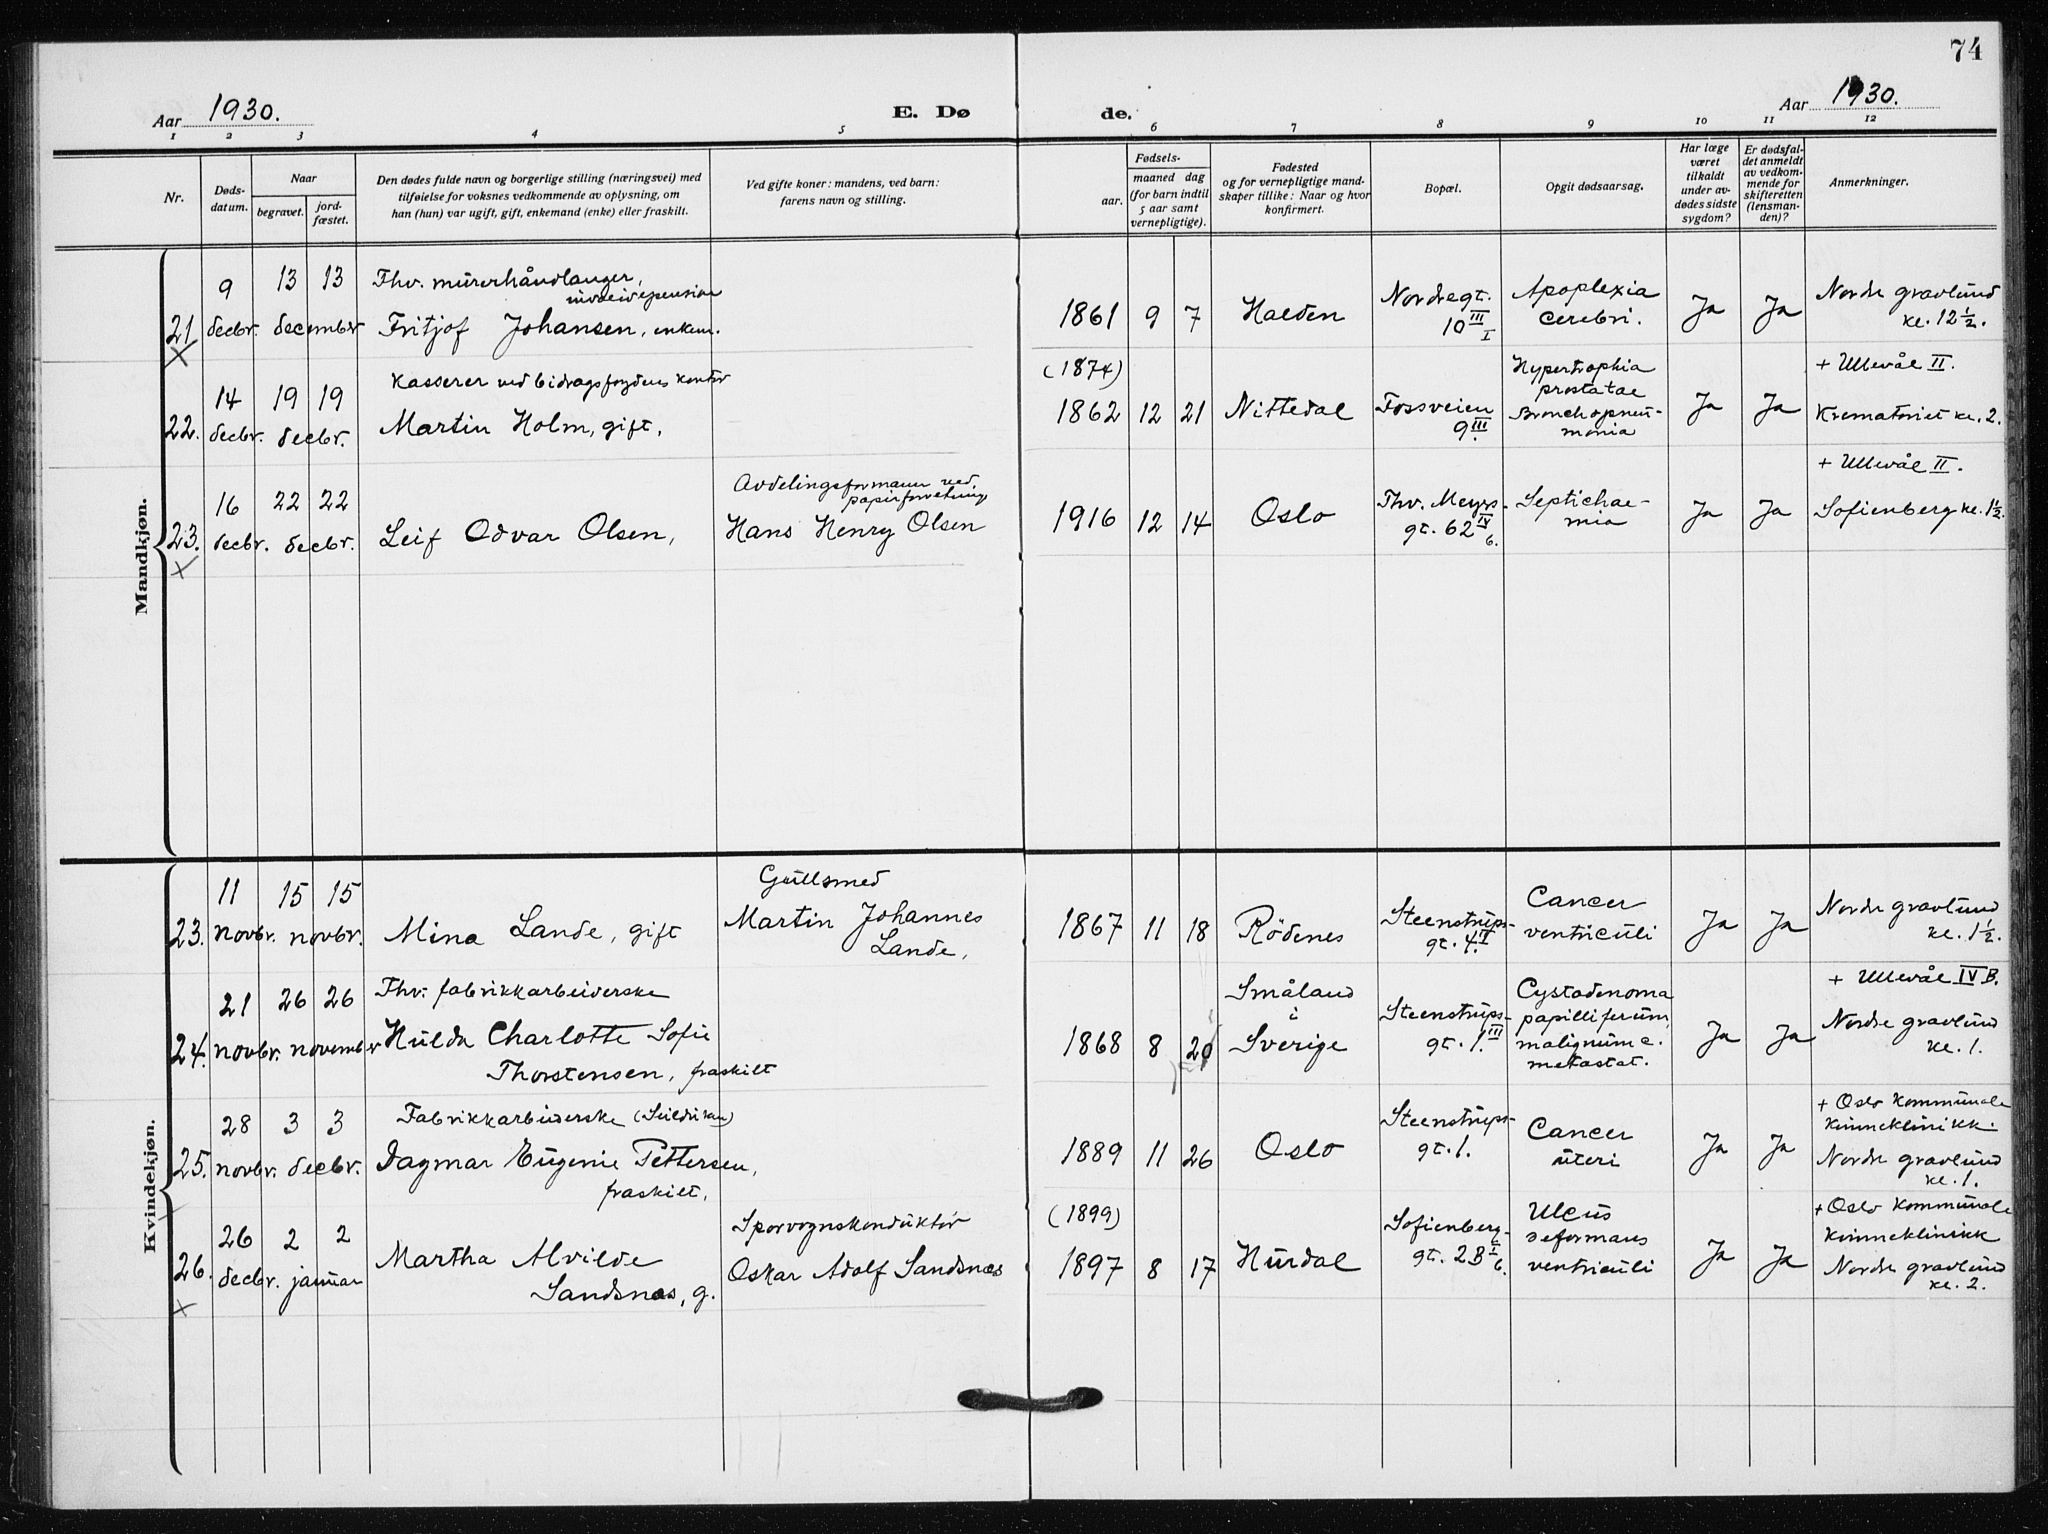 74
Aar 1930.
E. Dø de.
Aar 1930.
1 2 3 4 5 6 7 8 9 10 11 12
Nr.
Døds-
datum.
Naar
begravet.
jord-
fæstet.
Den dødes fulde navn og borgerlige stilling (næringsvei) med
tilføielse for voksnes vedkommende av oplysning, om
han (hun) var ugift, gift, enkemand (enke) eller fraskilt.
Ved gifte koner: mandens, ved barn:
farens navn og stilling.
Fødsels-
aar.
maaned dag
(for barn indtil
5 aar samt
vernepligtige).
Fødested
og for vernepligtige mand-
skaper tillike: Naar og hvor
konfirmert.
Bopæl.
Opgit dødsaarsag.
Har læge
været
tilkaldt
under av-
dødes sidste
sygdom?
Er dødsfal-
det anmeldt
av vedkom-
mende for
skifteretten
(lensman-
den)?
Anmerkninger.
Mandkjøn.
21
×
9
decbr.
13 13
december
Fhv. murerhåndlanger,
Fritjof Johansen, enkem.
1861 9 7
Halden
Nordregt.
10 III
I
Apoplexia
cerebri.
Ja Ja
Nordre gravlund
kl. 12 1/2.
22.
14
decbr.
19 19
decbr.
Kasserer ved bidragsfogdens kontor
Martin Holm, gift,
(1874)
1862 12 21
Nittedal
Fossveien
9 III.
Hypertrophia
prostatae
Bronchopneu-
monia
Ja Ja
+ Ullevål II.
Krematoriet kl. 2.
23.
×
16
decbr.
22 22
decbr.
Leif Odvar Olsen,
Avdelingsformann ved
papirforretning
Hans Henry Olsen
1916 12 14
Oslo
Thv. Meyers-
gt. 62 IV
6.
Septichae-
mia
Ja Ja
+ Ullevål II.
Sofienberg kl. 1 1/2
Kvindekjøn.
23.
11
novbr.
15 15
novbr.
Mina Lande, gift
Gullsmed
Martin Johannes
Lande,
1867 11 18
Rödenes
Steenstrups-
gt. 4
Cancer
ventriculi
Ja Ja
Nordre gravlund
kl. 1 1/2.
24.
21
novbr.
26 26
november
Fhv. fabrikkarbeiderske
Hulda Charlotte Sofie
Thorstensen, fraskilt
1868 8 20
Småland
i
Sverige
Steenstrups-
gt. 1. III
Cystadenoma
papilliferum,
malignum c.
metastat.
Ja Ja
+ Ullevål IV B.
Nordre gravlund
kl. 1.
25.
28
novbr.
3 3
decbr.
Fabrikkarbeiderske
Dagmar Eugenie Pettersen,
fraskilt,
1889 11 26
Oslo
Steenstrups-
gt. 1.
Cancer
uteri
Ja Ja
+ Oslo kommunale
kvinneklinikk.
Nordre gravlund
kl. 1.
26.
×
26
decbr.
2 2
januar
Martha Alvilde
Sandsnæs, g.
Sporvognskonduktör
Oskar Adolf Sandsnæs
(1899)
1897 8 17
Hurdal
Sofienberg-
gt. 2B I
6.
Ulcus
deformans
ventriculi
Ja Ja
+ Oslo kommunale
kvinneklinikk
Nordre gravlund
kl. 2.